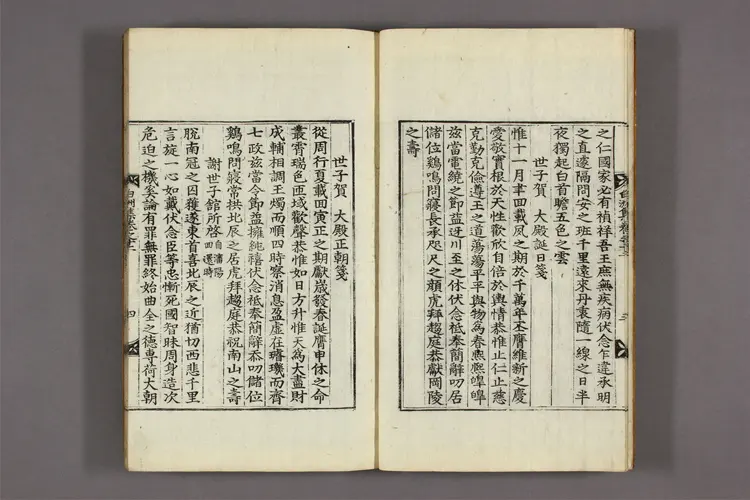 之仁國家必有禎祥吾王庶無疾病伏念乍違承明
之直遽隔問安之班千里遠來丹衷隨一線之日半
夜獨起白首瞻五色之雲
世子賀 大殿誕日箋
惟十一月聿回載夙之期於千萬年丕膺維新之慶
愛敬實根於天性歡欣自倍於輿情恭惟止仁止慈
克勤克儉遵王之道蕩蕩平平與物爲春熙熙皥皥
茲當電繞之節益迓川至之休伏念祗奉簡辭叨居
儲位鷄鳴問寢長承咫尺之顏虎拜趨庭恭獻岡陵
之壽
三
世子賀 大殿正朝箋
從周行夏載回寅正之期獻歲發春誕膺申休之命
叢霄瑞色匝域歡聲恭惟如日方升惟天爲大盡財
成輔相調玉燭而順四時察消息盈虛在璿璣而齊
七政茲當令節益擁純禧伏念祗奉簡辭忝叨儲位
鷄鳴問寢常拱北辰之居虎拜趨庭恭祝南山之壽
謝世子館所啓 自瀋陽回還時
脫南冠之囚獲遂東首喜北辰之近猶切西悲千里
言旋一心如戴伏念臣等忠慚死國智昧周身造次
危迫之機奚論有罪無罪終始曲全之德專荷大朝
白洲集卷之十二
四